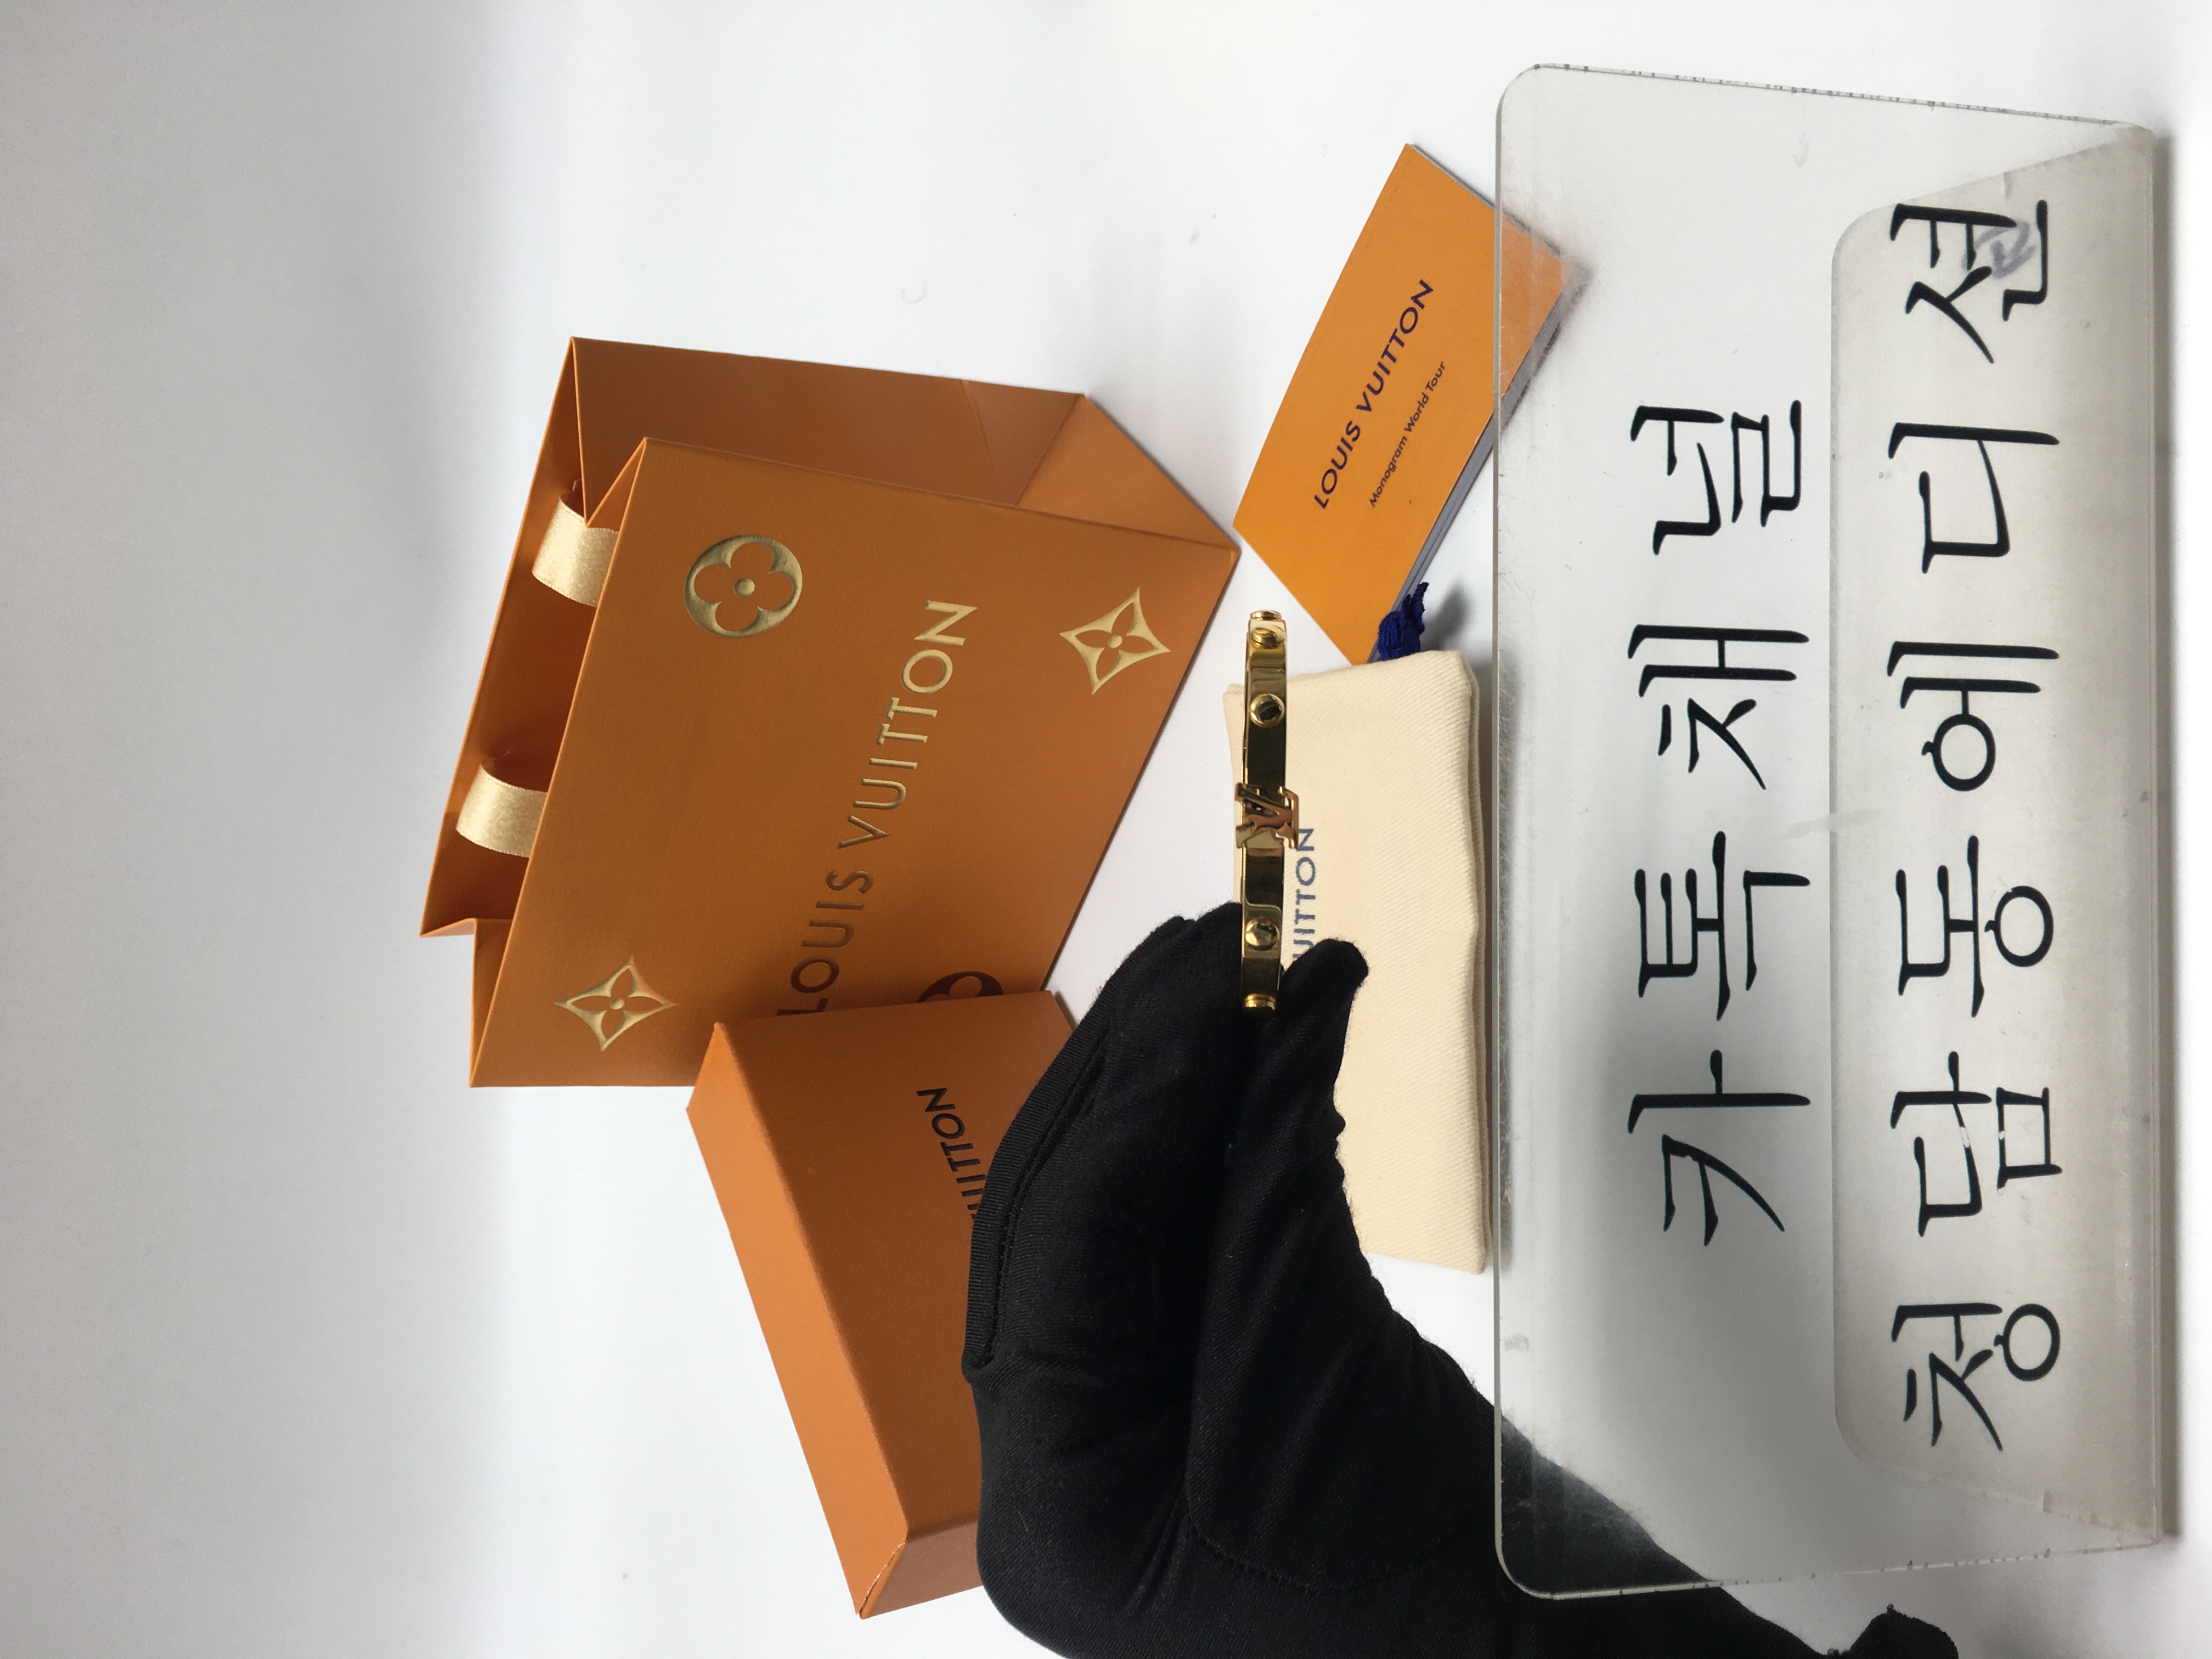 LOUIS VUITTON
LOUIS VUITTON
Monogram World Tour
UITTON
UITTON
LV
카톡채널
청담동에디션